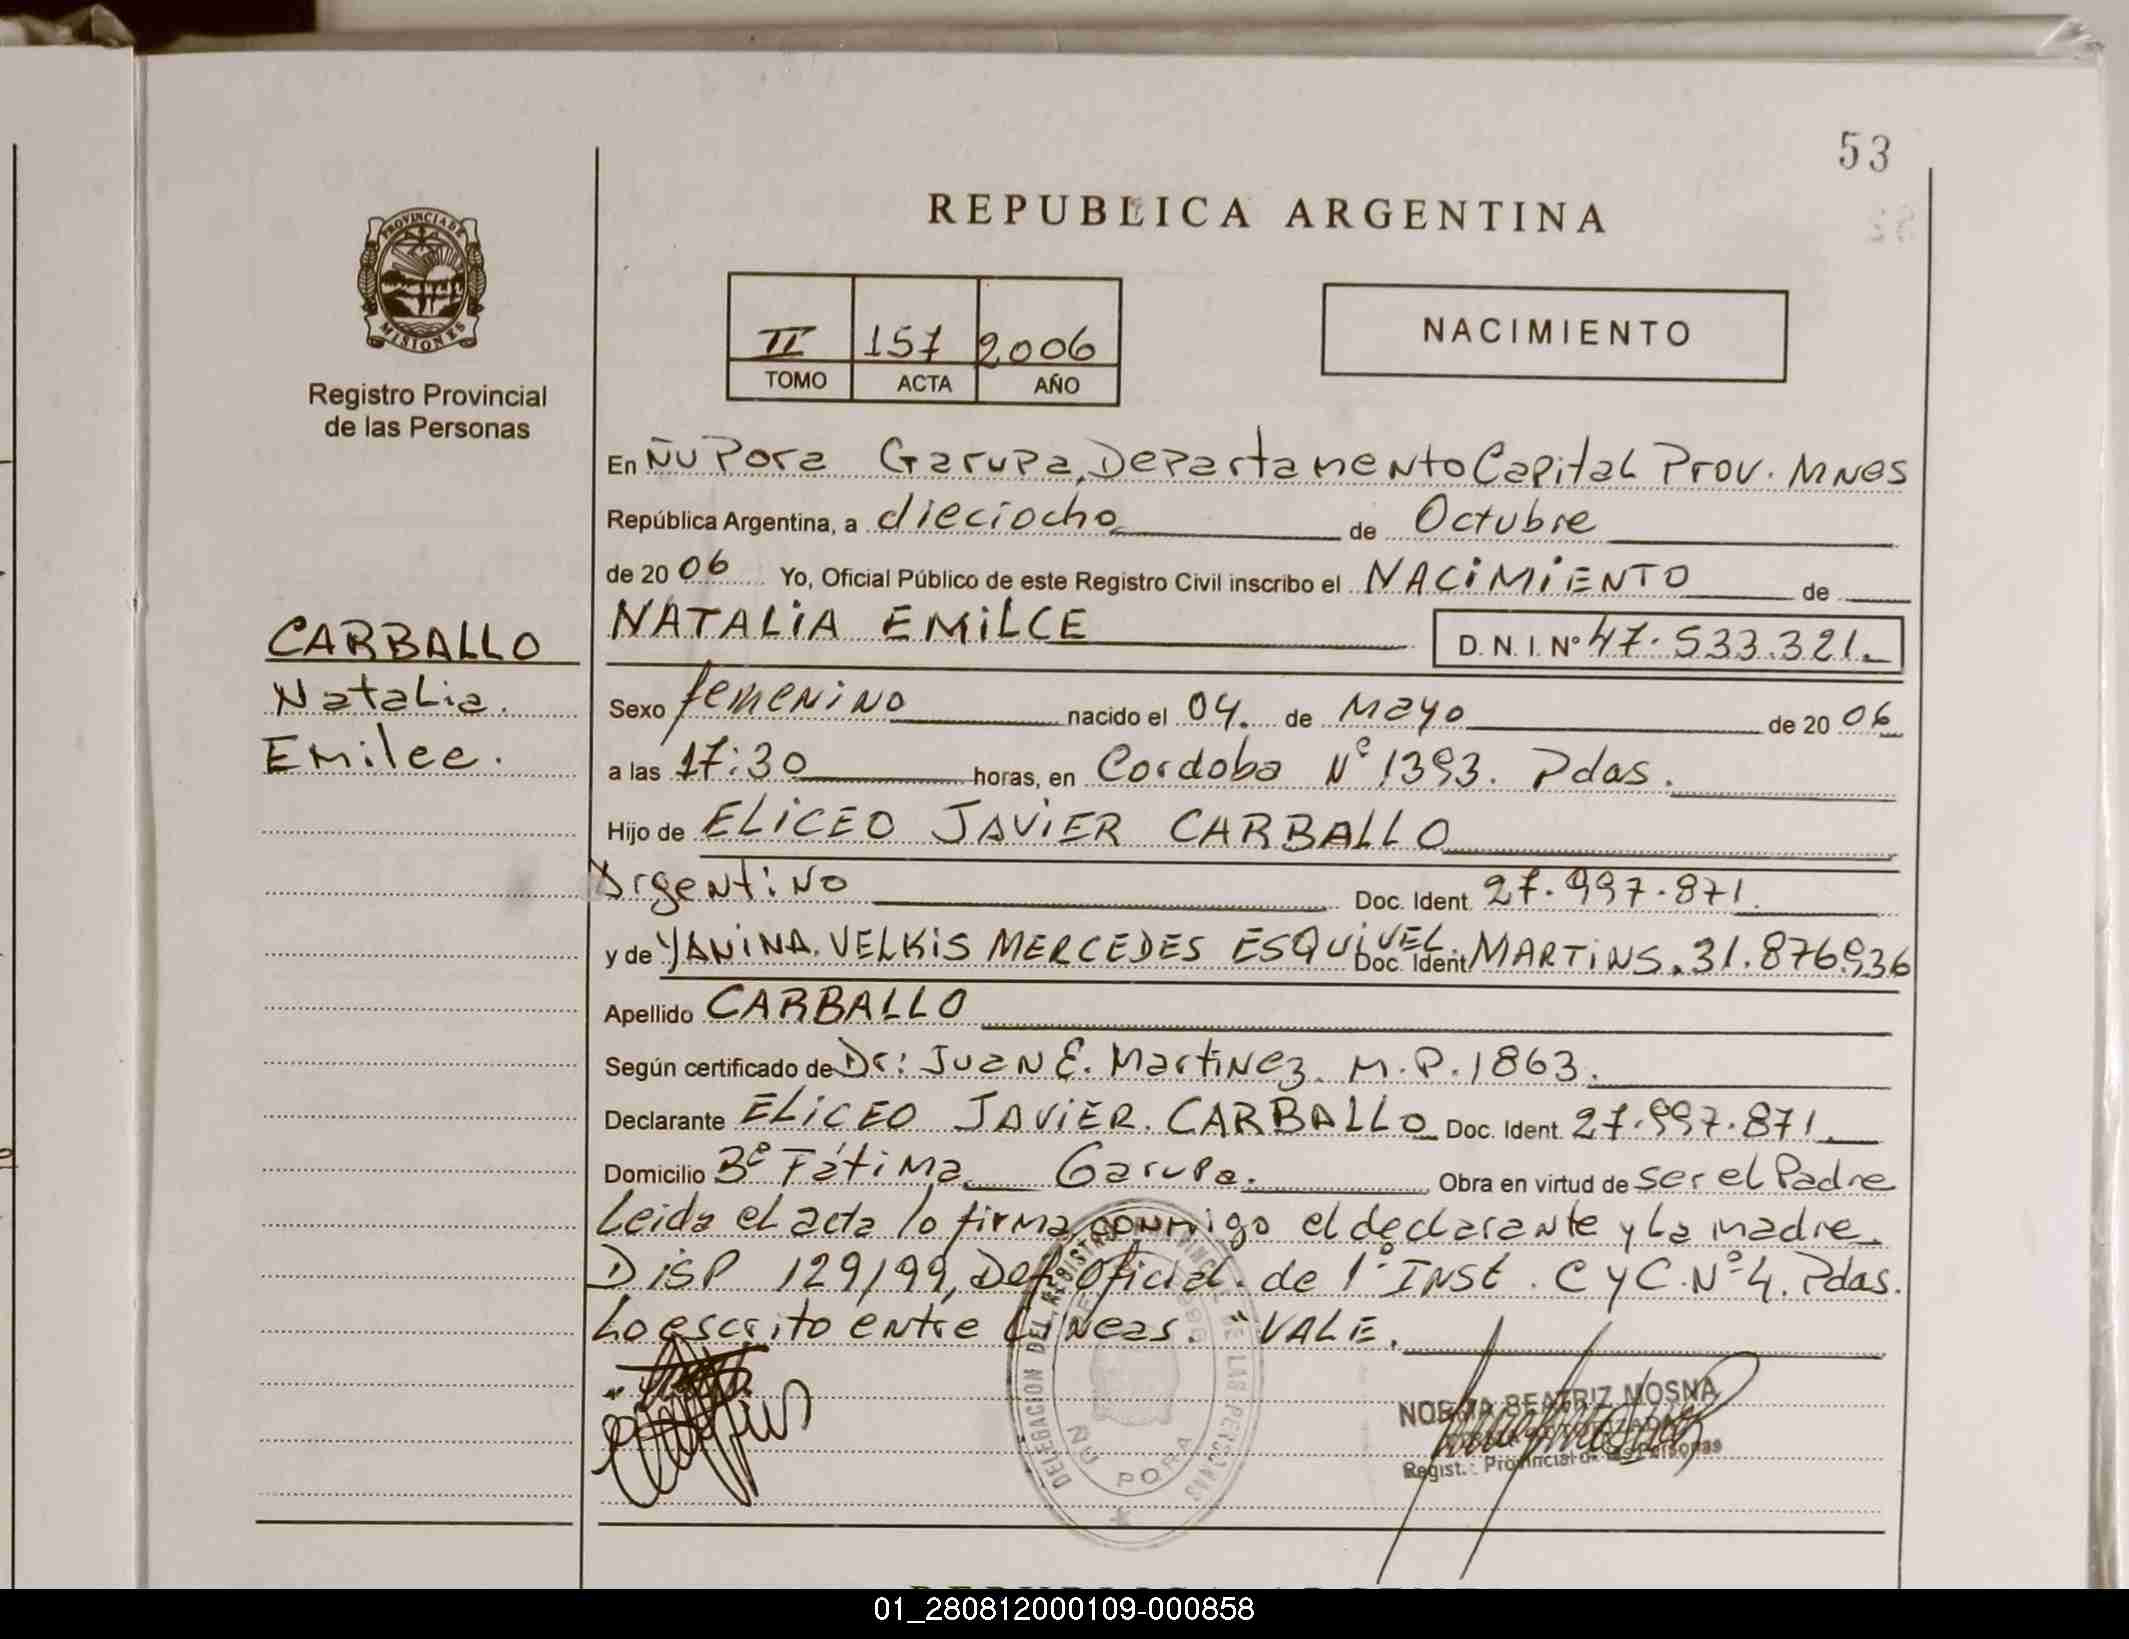 53
REPUBLICA ARGENTINA
PROVINCIA DE
MISIONES
Registro Provincial
de las Personas
II 157 2006
TOMO ACTA AÑO
NACIMIENTO
En Ñu Pora Garupa, Departamento Capital Prov. Mnes
República Argentina, a dieciocho de Octubre
de 2006 Yo, Oficial Público de este Registro Civil inscribo el NACIMIENTO de
NATALIA EMILCE D. N. I. Nº 47.533.321.
CARBALLO
Natalia.
Emilce.
Sexo femenino nacido el 04. de Mayo de 2006
a las 17:30 horas, en Cordoba Nº 1393. Pdas.
Hijo de ELICEO JAVIER CARBALLO
Argentino Doc. Ident. 27.997.871.
y de YANINA. VELKIS MERCEDES ESQUIVEL Doc. Ident. MARTINS. 31.876.936
Apellido CARBALLO
Según certificado de Dr: Juan E. Martinez M.P. 1863.
Declarante ELICEO JAVIER. CARBALLO Doc. Ident. 27.997.871.
Domicilio Bº Fátima Garupa. Obra en virtud de ser el Padre
Leida el acta lo firma conmigo el declarante y la madre
DISP 129/99, Def. Oficial. de 1º INST. C y C. Nº 4. Pdas.
Lo escrito entre Lineas. "VALE.
DELEGACION DEL REGISTRO PROVINCIAL DE LAS PERSONAS
ÑU PORA
NORMA BEATRIZ MOSNA
Regist. Provincial de las Personas
01_280812000109-000858